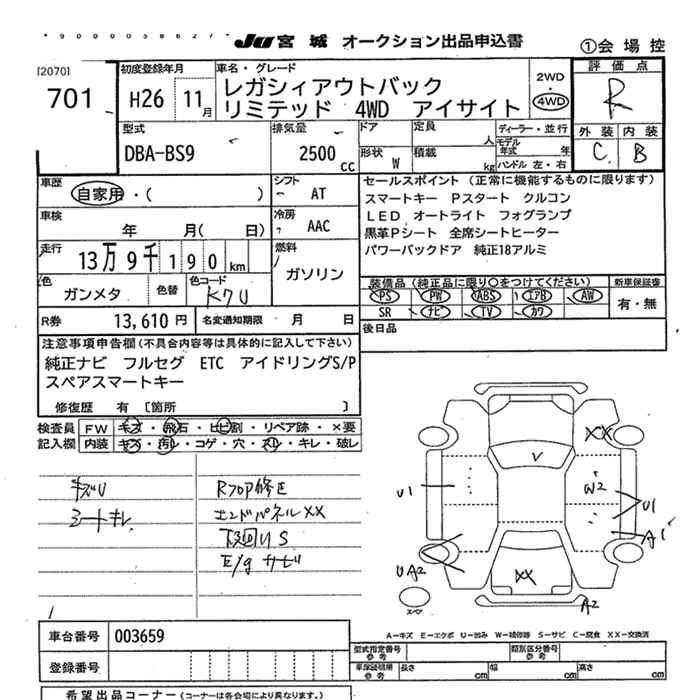 *9000058627*
JU 宮城 オークション出品申込書
①会場控
[2070]
701
初度登録年月
H26 11月
車名・グレード
レガシィアウトバック
リミテッド 4WD アイサイト
2WD
・
4WD
評価点
R
外装 内装
C B
型式
DBA-BS9
排気量
2500 cc
ドア
定員 人
形状 W
積載 kg
ディーラー・並行
モデル年式 年
ハンドル 左・右
車歴
自家用・( )
シフト
AT
車検
年 月( 日)
冷房
AAC
走行
13万9千190km
燃料
ガソリン
色
ガンメタ
色替
色コード
K7U
R券 13,610円
名変通知期限 月 日
セールスポイント (正常に機能するものに限ります)
スマートキー Pスタート クルコン
LED オートライト フォグランプ
黒革Pシート 全席シートヒーター
パワーバックドア 純正18アルミ
装備品(純正品に限り○をつけてください)
PS PW ABS エアB AW
SR ナビ TV カワ
新車保証書
有・無
後日品
注意事項申告欄(不具合内容等は具体的に記入して下さい)
純正ナビ フルセグ ETC アイドリングS/P
スペアスマートキー
修復歴 有 〔箇所 〕
検査員記入欄
FW キズ・飛石・ヒビ割・リペア跡・×要
内装 キズ・汚レ・コゲ・穴・スレ・キレ・破レ
キズU
シートキレ
Rフロア修正
エンドパネルXX
下回りS
E/gサビ
V
XX
W2
U1
U1
A1
UA2
XX
A2
スペア
A-キズ E-エクボ U-凹み W-補修跡 S-サビ C-腐食 XX-交換済
車台番号 003659
登録番号
型式指定番号 参考
類別区分番号 参考
車庫証明用 参考
長さ cm 幅 cm 高さ cm
希望出品コーナー(コーナーは各会場により異なります。)